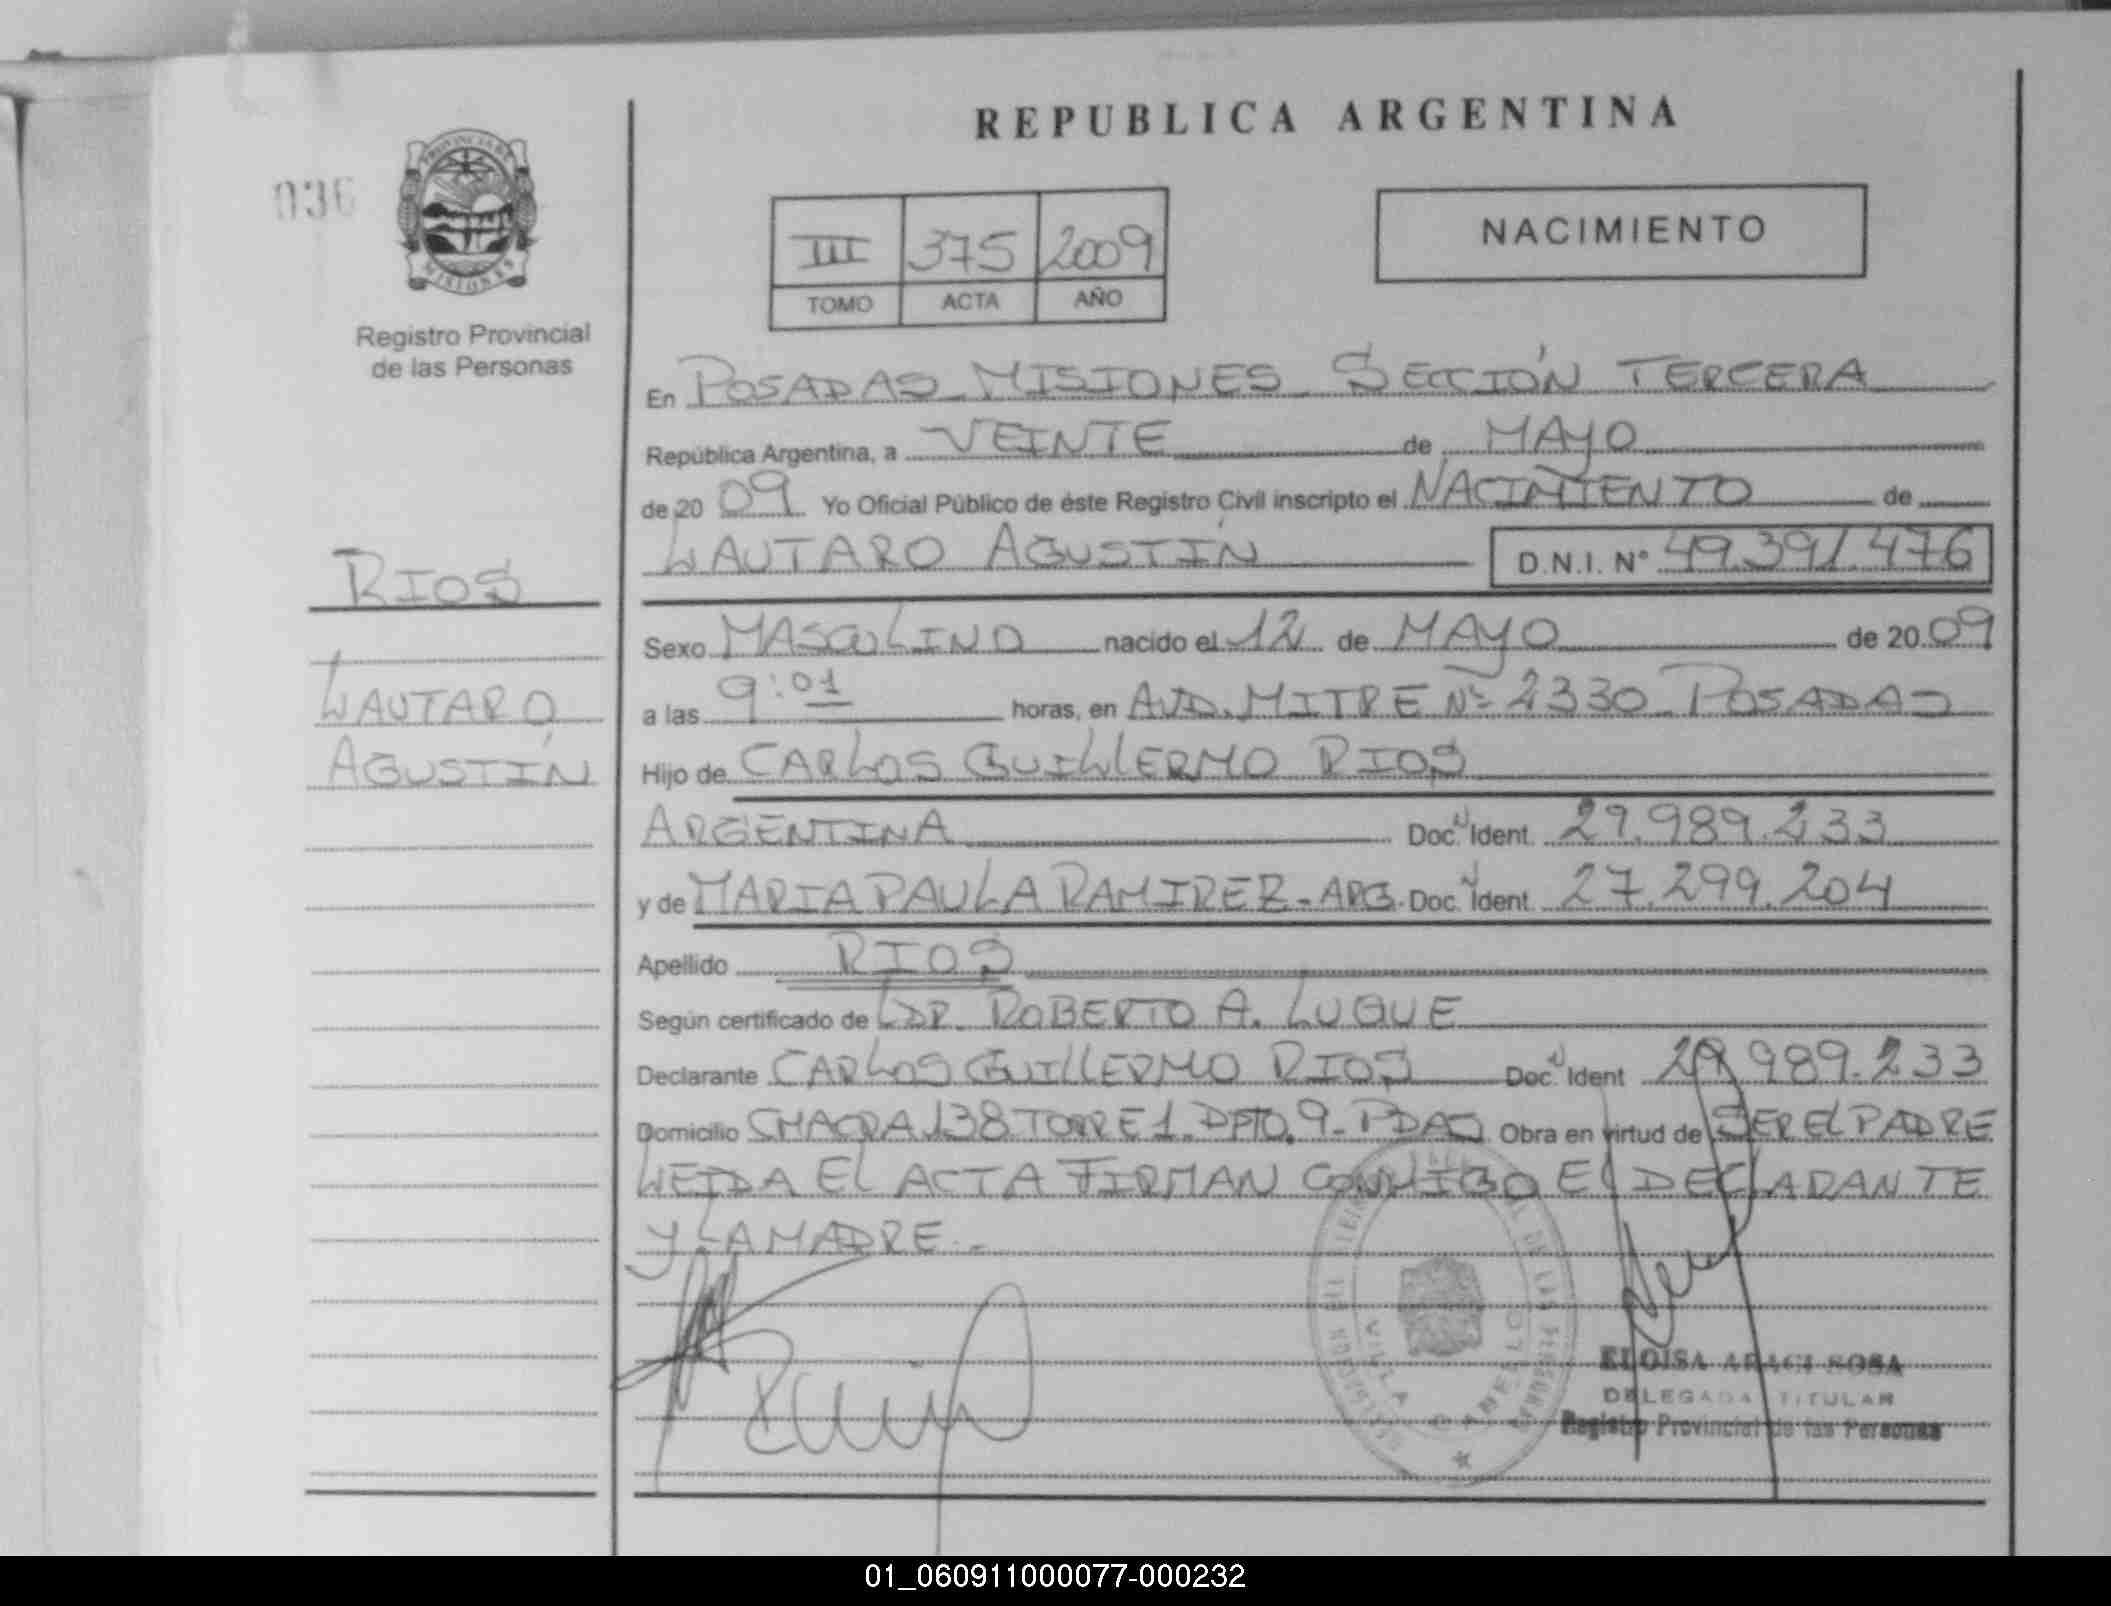 REPUBLICA ARGENTINA
036
PROVINCIA DE
MISIONES
Registro Provincial
de las Personas
III 375 2009
TOMO ACTA AÑO
NACIMIENTO
En POSADAS MISIONES SECCIÓN TERCERA
República Argentina, a VEINTE de MAYO
de 20 09 Yo Oficial Público de éste Registro Civil inscripto el NACIMIENTO de
LAUTARO AGUSTÍN D.N.I. Nº 49.391.476
RIOS
LAUTARO
AGUSTÍN
Sexo MASCULINO nacido el 12 de MAYO de 20 09
a las 9:01 horas, en AVD. MITRE Nº 2330 POSADAS
Hijo de CARLOS GUILLERMO RIOS
ARGENTINA Doc. N Ident. 29.989.233
y de MARIA PAULA RAMIREZ - ARG. Doc. N Ident. 27.299.204
Apellido RIOS
Según certificado de LDR. ROBERTO A. LUQUE
Declarante CARLOS GUILLERMO RIOS Doc. N Ident 29.989.233
Domicilio CHACRA 138 TORRE 1 DPTO. 9 - PDAS Obra en virtud de SER EL PADRE
LEIDA EL ACTA FIRMAN CONMIGO EL DECLARANTE
Y LA MADRE.-
VILLA CABELLO
DE LAS PERSONAS
ELOISA ARACI SOSA
DELEGADA TITULAR
Registro Provincial de las Personas
01_060911000077-000232